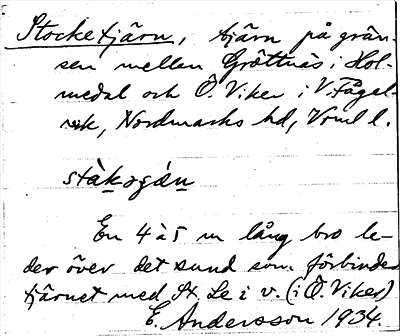 Stocketjärn, tjärn på grän-
sen mellan Gröttnäs i Hol-
medal och Ö. Viker i V. Fågel-
vik, Nordmarks hd, Vrml l.
stàkəgán
En 4 à 5 m lång bro le-
der över det sund som förbinder
tjärnet med St. Le i v. (i Ö. Viker)
E. Andersson 1934.